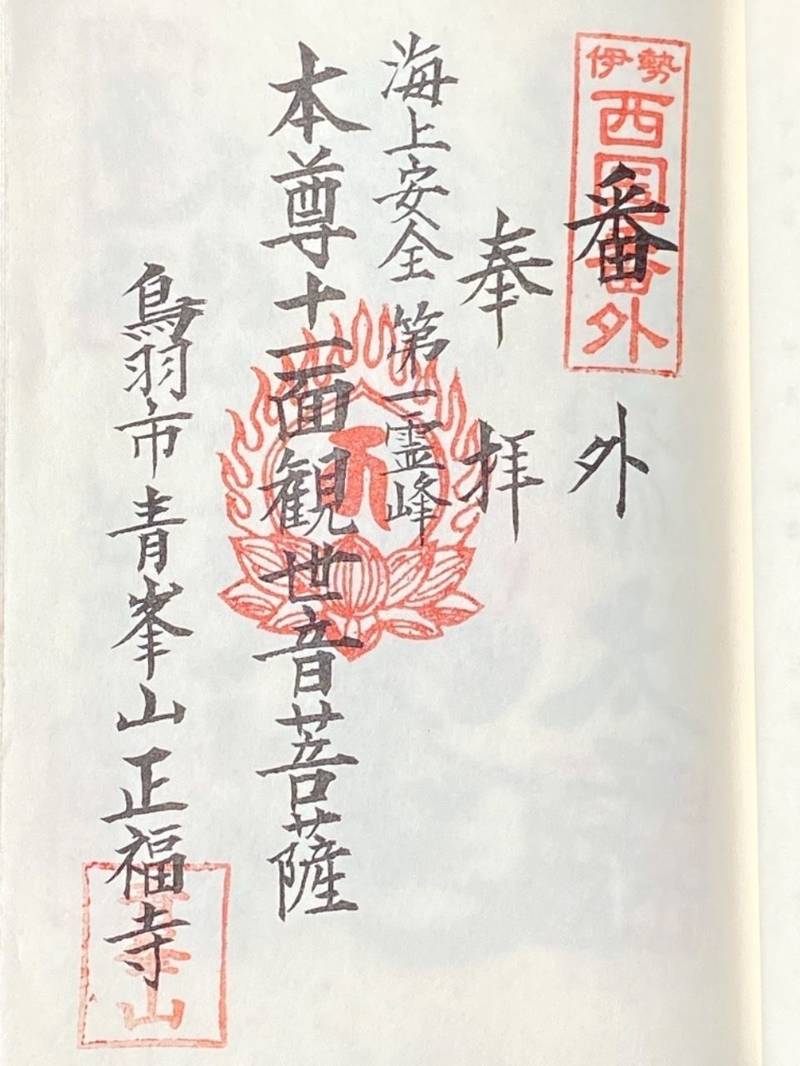 伊勢
西国番外
番外
奉拝
海上安全 第一霊峰
本尊十一面観世音菩薩
鳥羽市青峯山正福寺
青峯山